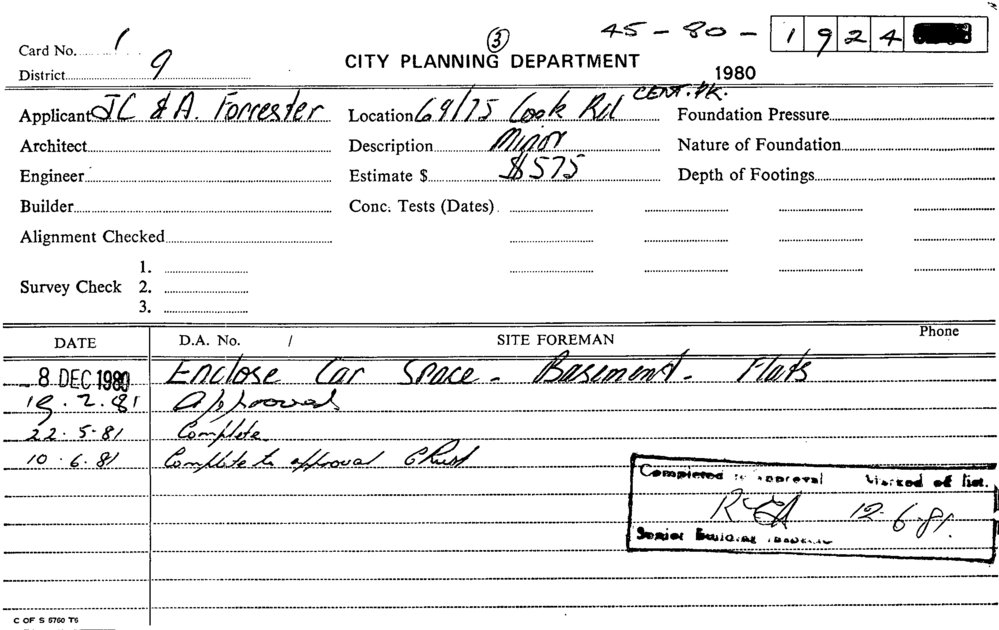 Card No. 1 (3) 45-80-1924
District 9 CITY PLANNING DEPARTMENT 1980
Applicant JC & A. Forrester Location 69/75 Cook Rd CENT. PK. Foundation Pressure
Architect Description Minor Nature of Foundation
Engineer Estimate $ $575 Depth of Footings
Builder Conc. Tests (Dates)
Alignment Checked
1.
Survey Check 2.
3.
DATE D.A. No. / SITE FOREMAN Phone
8 DEC 1980 Enclose Car Space - Basement - Flats
19.2.81 Approved
22.5.81 Complete
10.6.81 Complete to approval
Completed to approval Marked off list.
12.6.81.
Senior Building
C OF S 5760 T6